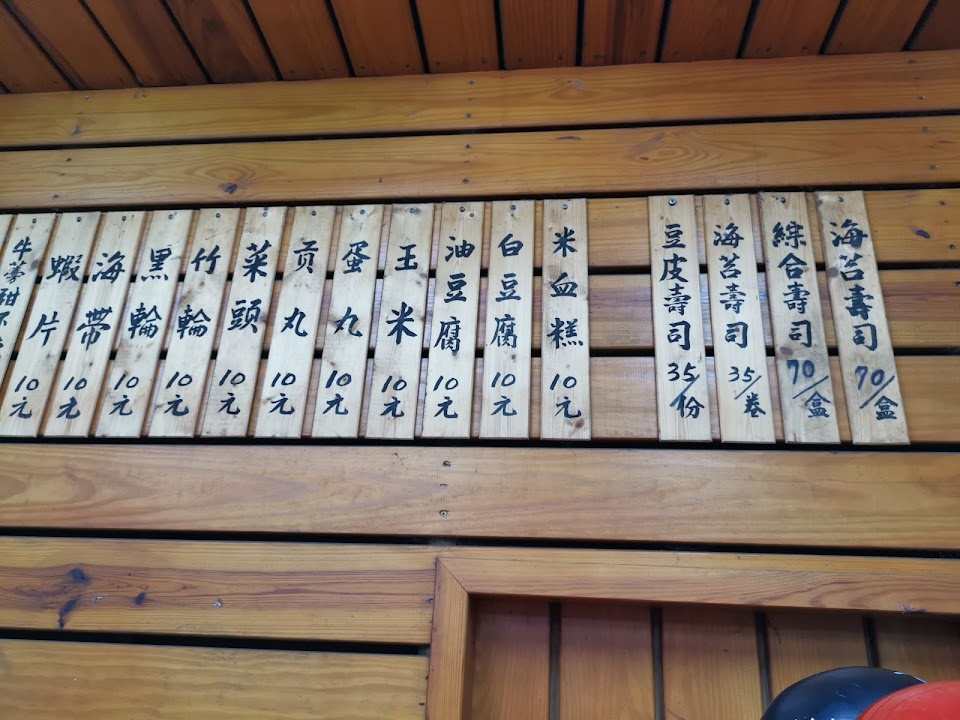 海苔壽司 70/盒
綜合壽司 70/盒
海苔壽司 35/卷
豆皮壽司 35/份
米血糕 10元
白豆腐 10元
油豆腐 10元
玉米 10元
蛋丸 10元
贡丸 10元
菜頭 10元
竹輪 10元
黑輪 10元
海帶 10元
蝦片 10元
牛蒡甜不